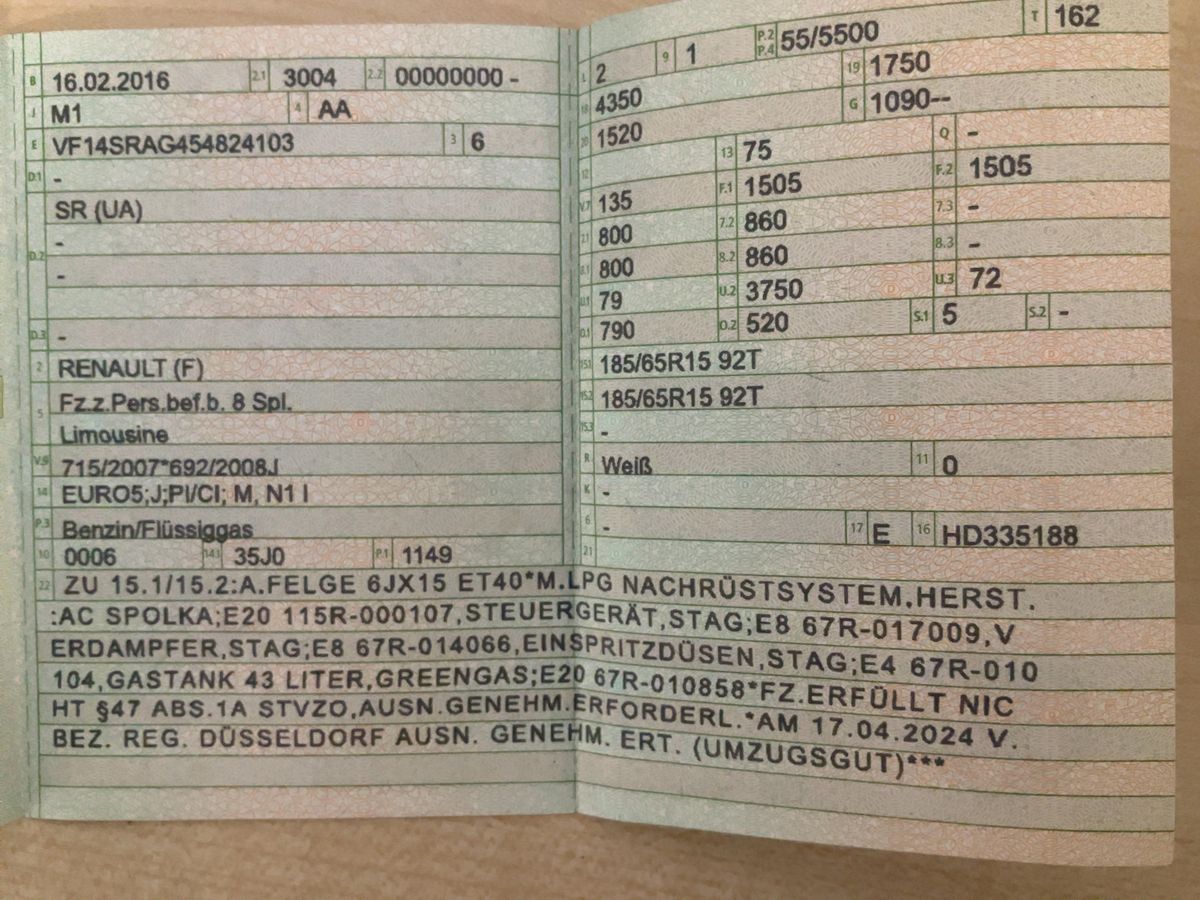 B 16.02.2016 2.1 3004 2.2 00000000 -
J M1 4 AA
E VF14SRAG454824103 3 6
D.1 -
SR (UA)
D.2 -
-
D.3 -
2 RENAULT (F)
5 Fz.z.Pers.bef.b. 8 Spl.
Limousine
V.9 715/2007*692/2008J
14 EURO5;J;PI/CI; M, N1 I
P.3 Benzin/Flüssiggas
10 0006 14.1 35J0 P.1 1149
L 2 9 1 P.2 P.4 55/5500 T 162
18 4350 19 1750
20 1520 G 1090--
12 13 75 Q -
V.7 135 F.1 1505 F.2 1505
7.1 800 7.2 860 7.3 -
8.1 800 8.2 860 8.3 -
U.1 79 U.2 3750 U.3 72
O.1 790 O.2 520 S.1 5 S.2 -
15.1 185/65R15 92T
15.2 185/65R15 92T
15.3 -
R Weiß 11 0
K -
6 - 17 E 16 HD335188
21
22 ZU 15.1/15.2:A.FELGE 6JX15 ET40*M.LPG NACHRÜSTSYSTEM.HERST.
:AC SPOLKA;E20 115R-000107,STEUERGERÄT,STAG;E8 67R-017009,V
ERDAMPFER,STAG;E8 67R-014066,EINSPRITZDÜSEN,STAG;E4 67R-010
104,GASTANK 43 LITER,GREENGAS;E20 67R-010858*FZ.ERFÜLLT NIC
HT §47 ABS.1A STVZO,AUSN.GENEHM.ERFORDERL.*AM 17.04.2024 V.
BEZ. REG. DÜSSELDORF AUSN. GENEHM. ERT. (UMZUGSGUT)***